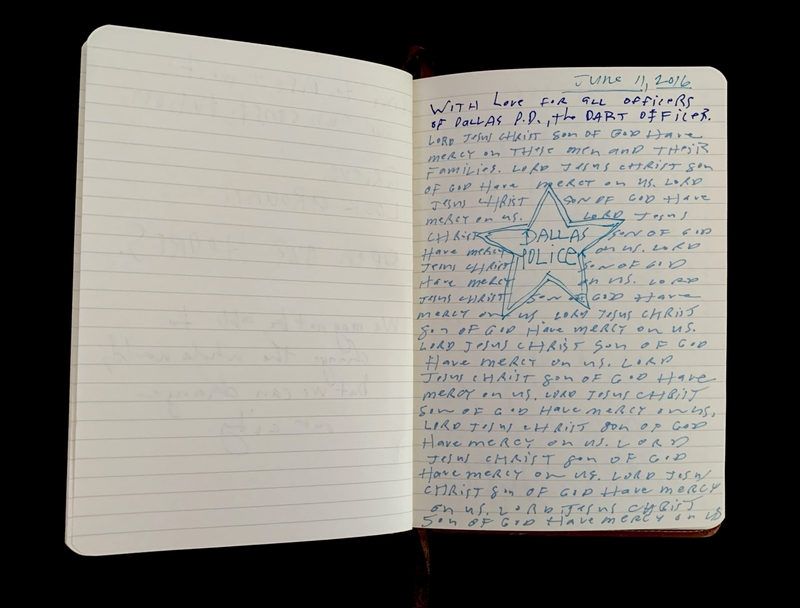 JUNE 11, 2016
WITH Love for all officers
of DALLAS P.D., the DART OFFICER.
LORD JESUS CHRIST SON OF GOD Have
mercy on THESE men AND THEIR
Families. LORD JESUS CHRIST SON
OF GOD Have mercy on us. LORD
JESUS CHRIST SON OF GOD Have
mercy on us. LORD JESUS
CHRIST SON OF GOD
Have mercy on us. LORD
JESUS CHRIST SON OF GOD
Have mercy on us. LORD
JESUS CHRIST SON OF GOD Have
mercy on us. LORD JESUS CHRIST
SON OF GOD Have mercy on us.
LORD JESUS CHRIST SON OF GOD
Have mercy on us. LORD
JESUS CHRIST SON OF GOD Have
mercy on us. LORD JESUS CHRIST
SON OF GOD Have mercy on us,
LORD JESUS CHRIST SON OF GOD
Have mercy on us. LORD
JESUS CHRIST SON OF GOD
Have mercy on us. LORD JESUS
CHRIST SON OF GOD Have mercy
on us. LORD JESUS CHRIST
SON OF GOD Have mercy on us
DALLAS
POLICE